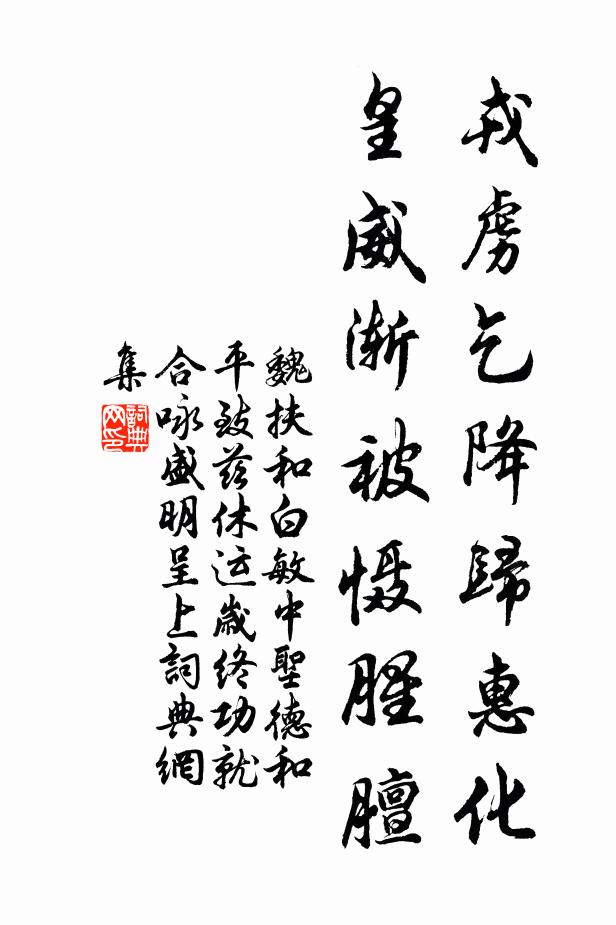 戎虏乞降歸惠化
皇威漸被慑腥膻
魏扶和白敏中聖德和
平致茲休运歲终功就
合咏盛明呈上詞典網
集
詞典
网印